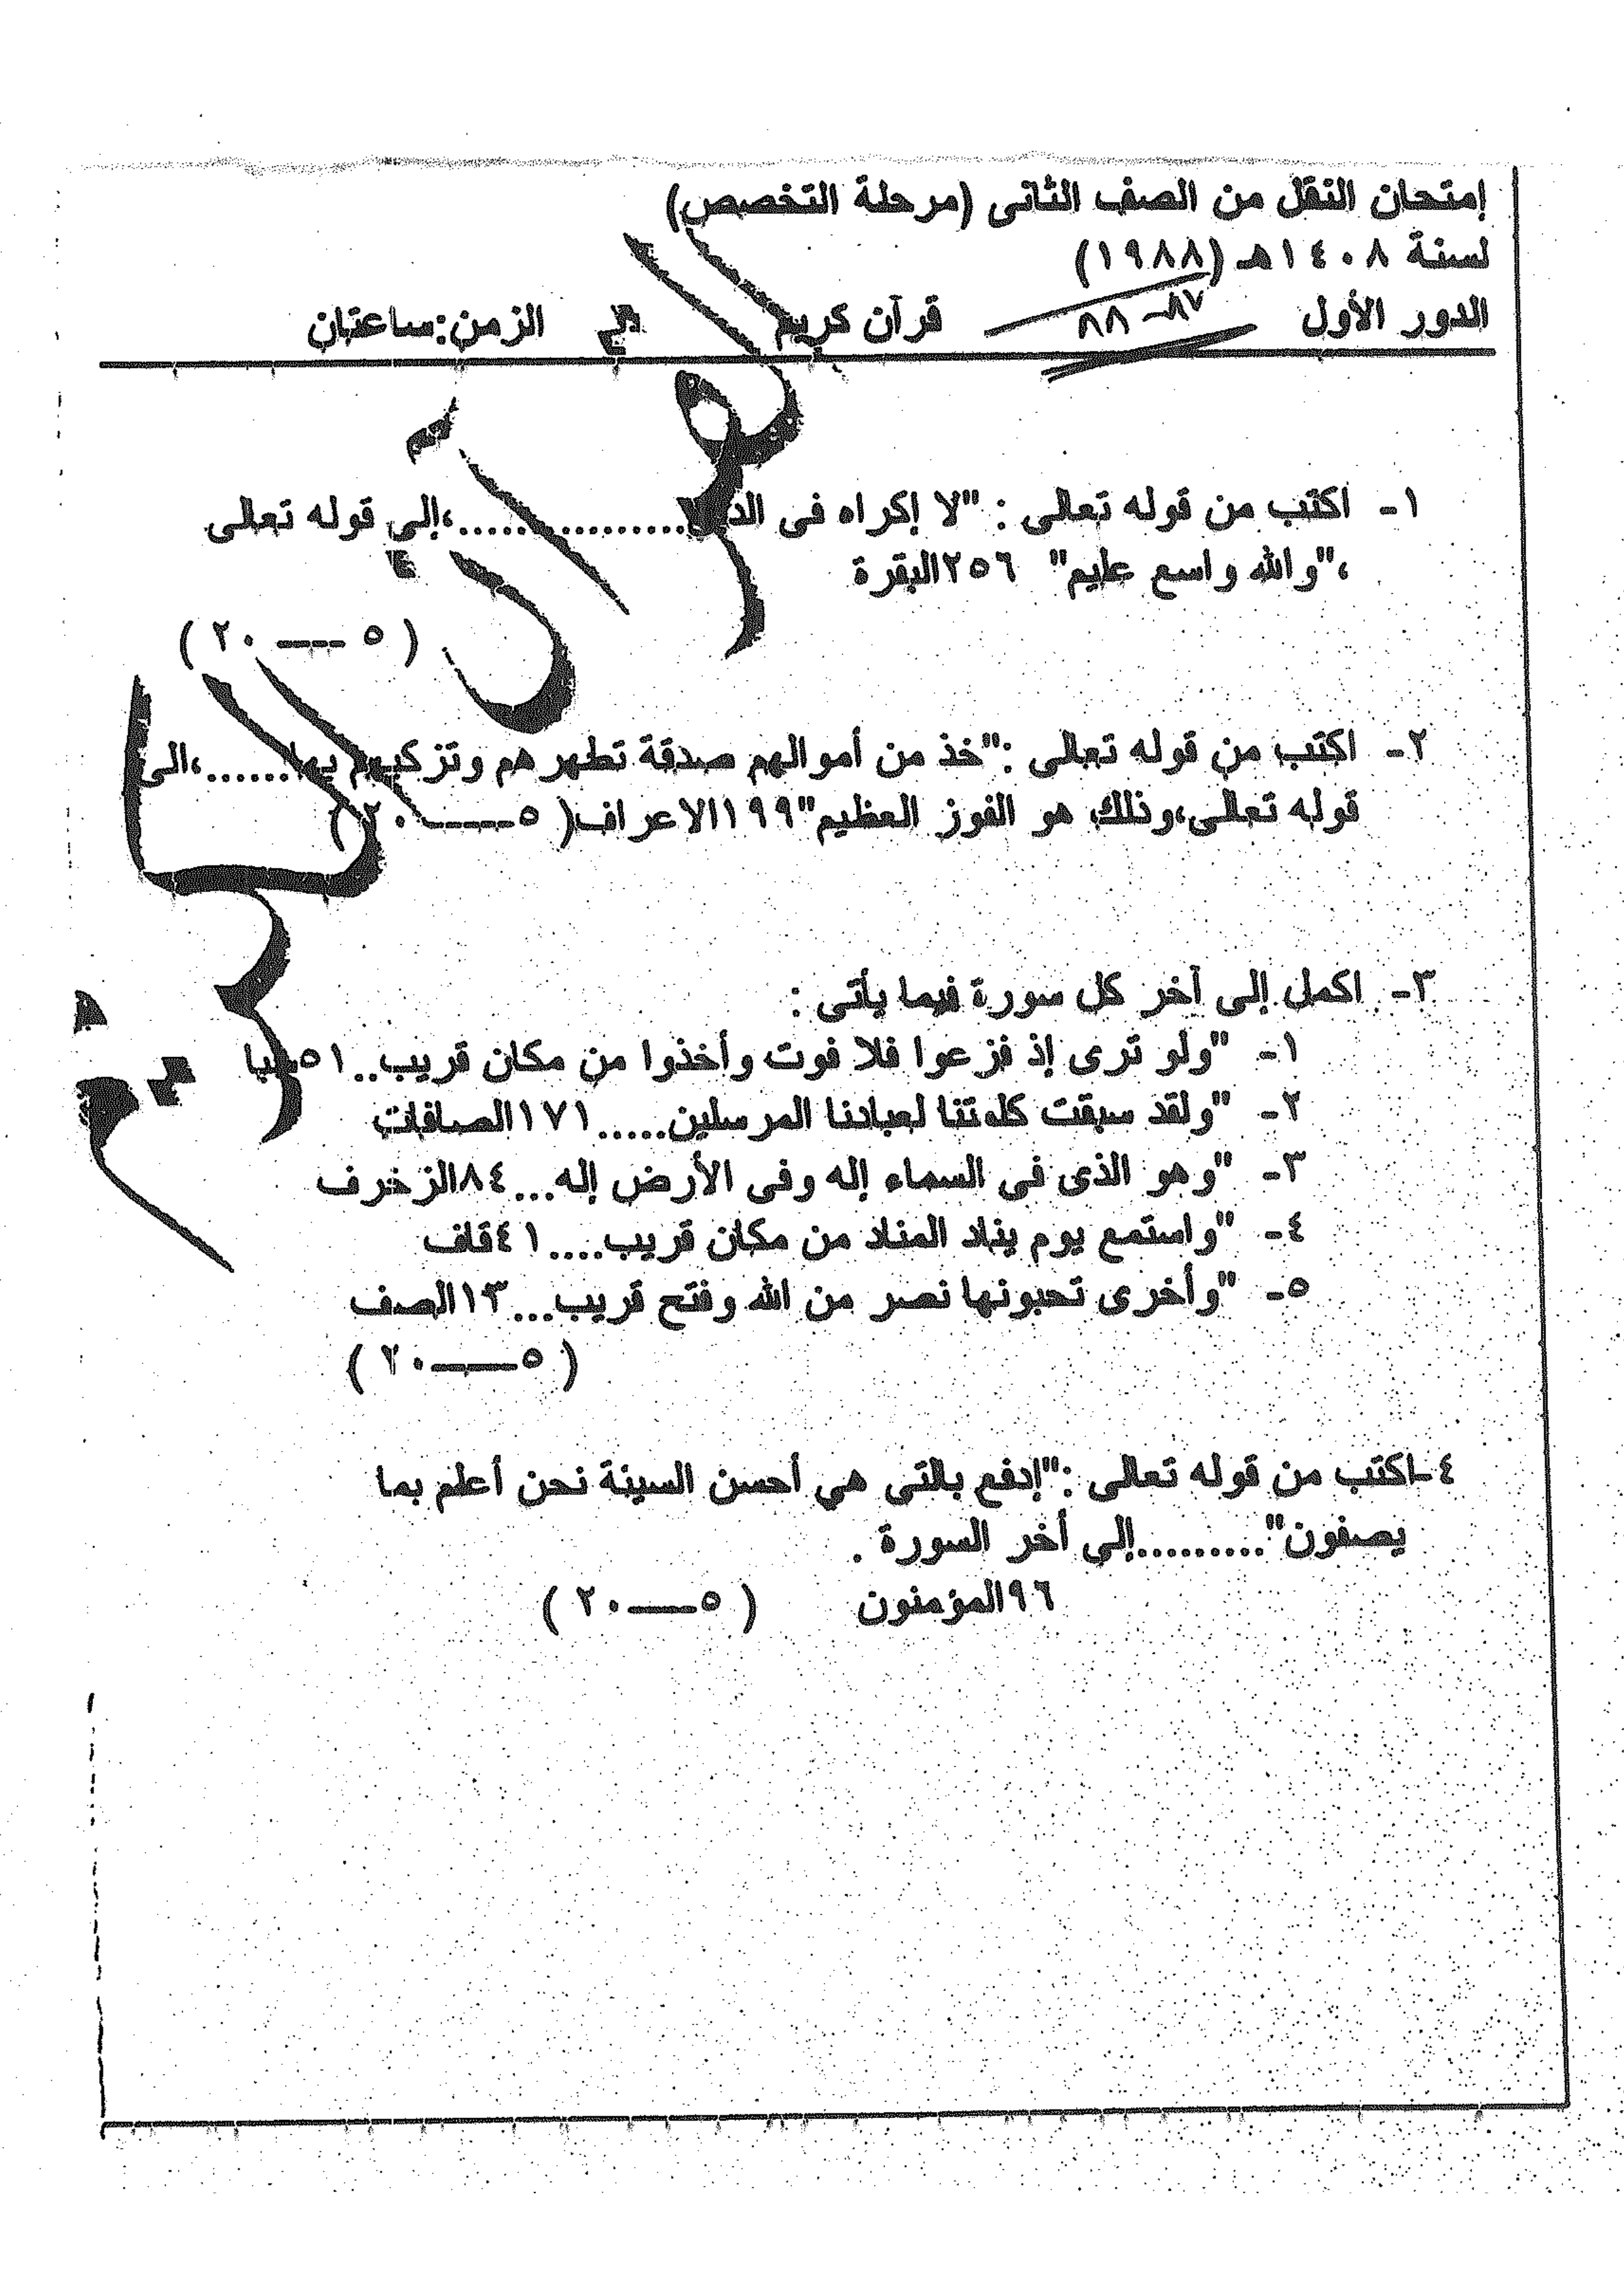 إمتحان النقل من الصف الثانى (مرحلة التخصص)
لسنة ١٤٠٨هـ (١٩٨٨)
الدور الأول ٨٧-٨٨ قرآن كريم الزمن:ساعتان
القرآن الكريم
١- اكتب من قوله تعالى : "لا إكراه فى ...............،إلى قوله تعالى
،"والله واسع عليم" ٢٥٦البقرة
( ٥ ---- ٢٠ )
٢- اكتب من قوله تعالى :"خذ من أموالهم صدقة تطهرهم وتزكيهم بها......،الى
قوله تعالى،وذلك هو الفوز العظيم"١٩٩الاعراف( ٥-----٢٠ )
٣- اكمل إلى آخر كل سورة فيما يأتى :
١- "ولو ترى إذ فزعوا فلا فوت وأخذوا من مكان قريب..٥١سبا
٢- "ولقد سبقت كلمتنا لعبادنا المرسلين.....١٧١الصافات
٣- "وهو الذى فى السماء إله وفى الأرض إله...٨٤الزخرف
٤- "واستمع يوم يناد المناد من مكان قريب....٤١قاف
٥- "وأخرى تحبونها نصر من الله وفتح قريب...١٣الصف
( ٥----٢٠ )
٤-اكتب من قوله تعالى :"إدفع بالتى هي أحسن السيئة نحن أعلم بما
يصفون".........إلي أخر السورة .
٩٦المؤمنون ( ٥---٢٠ )